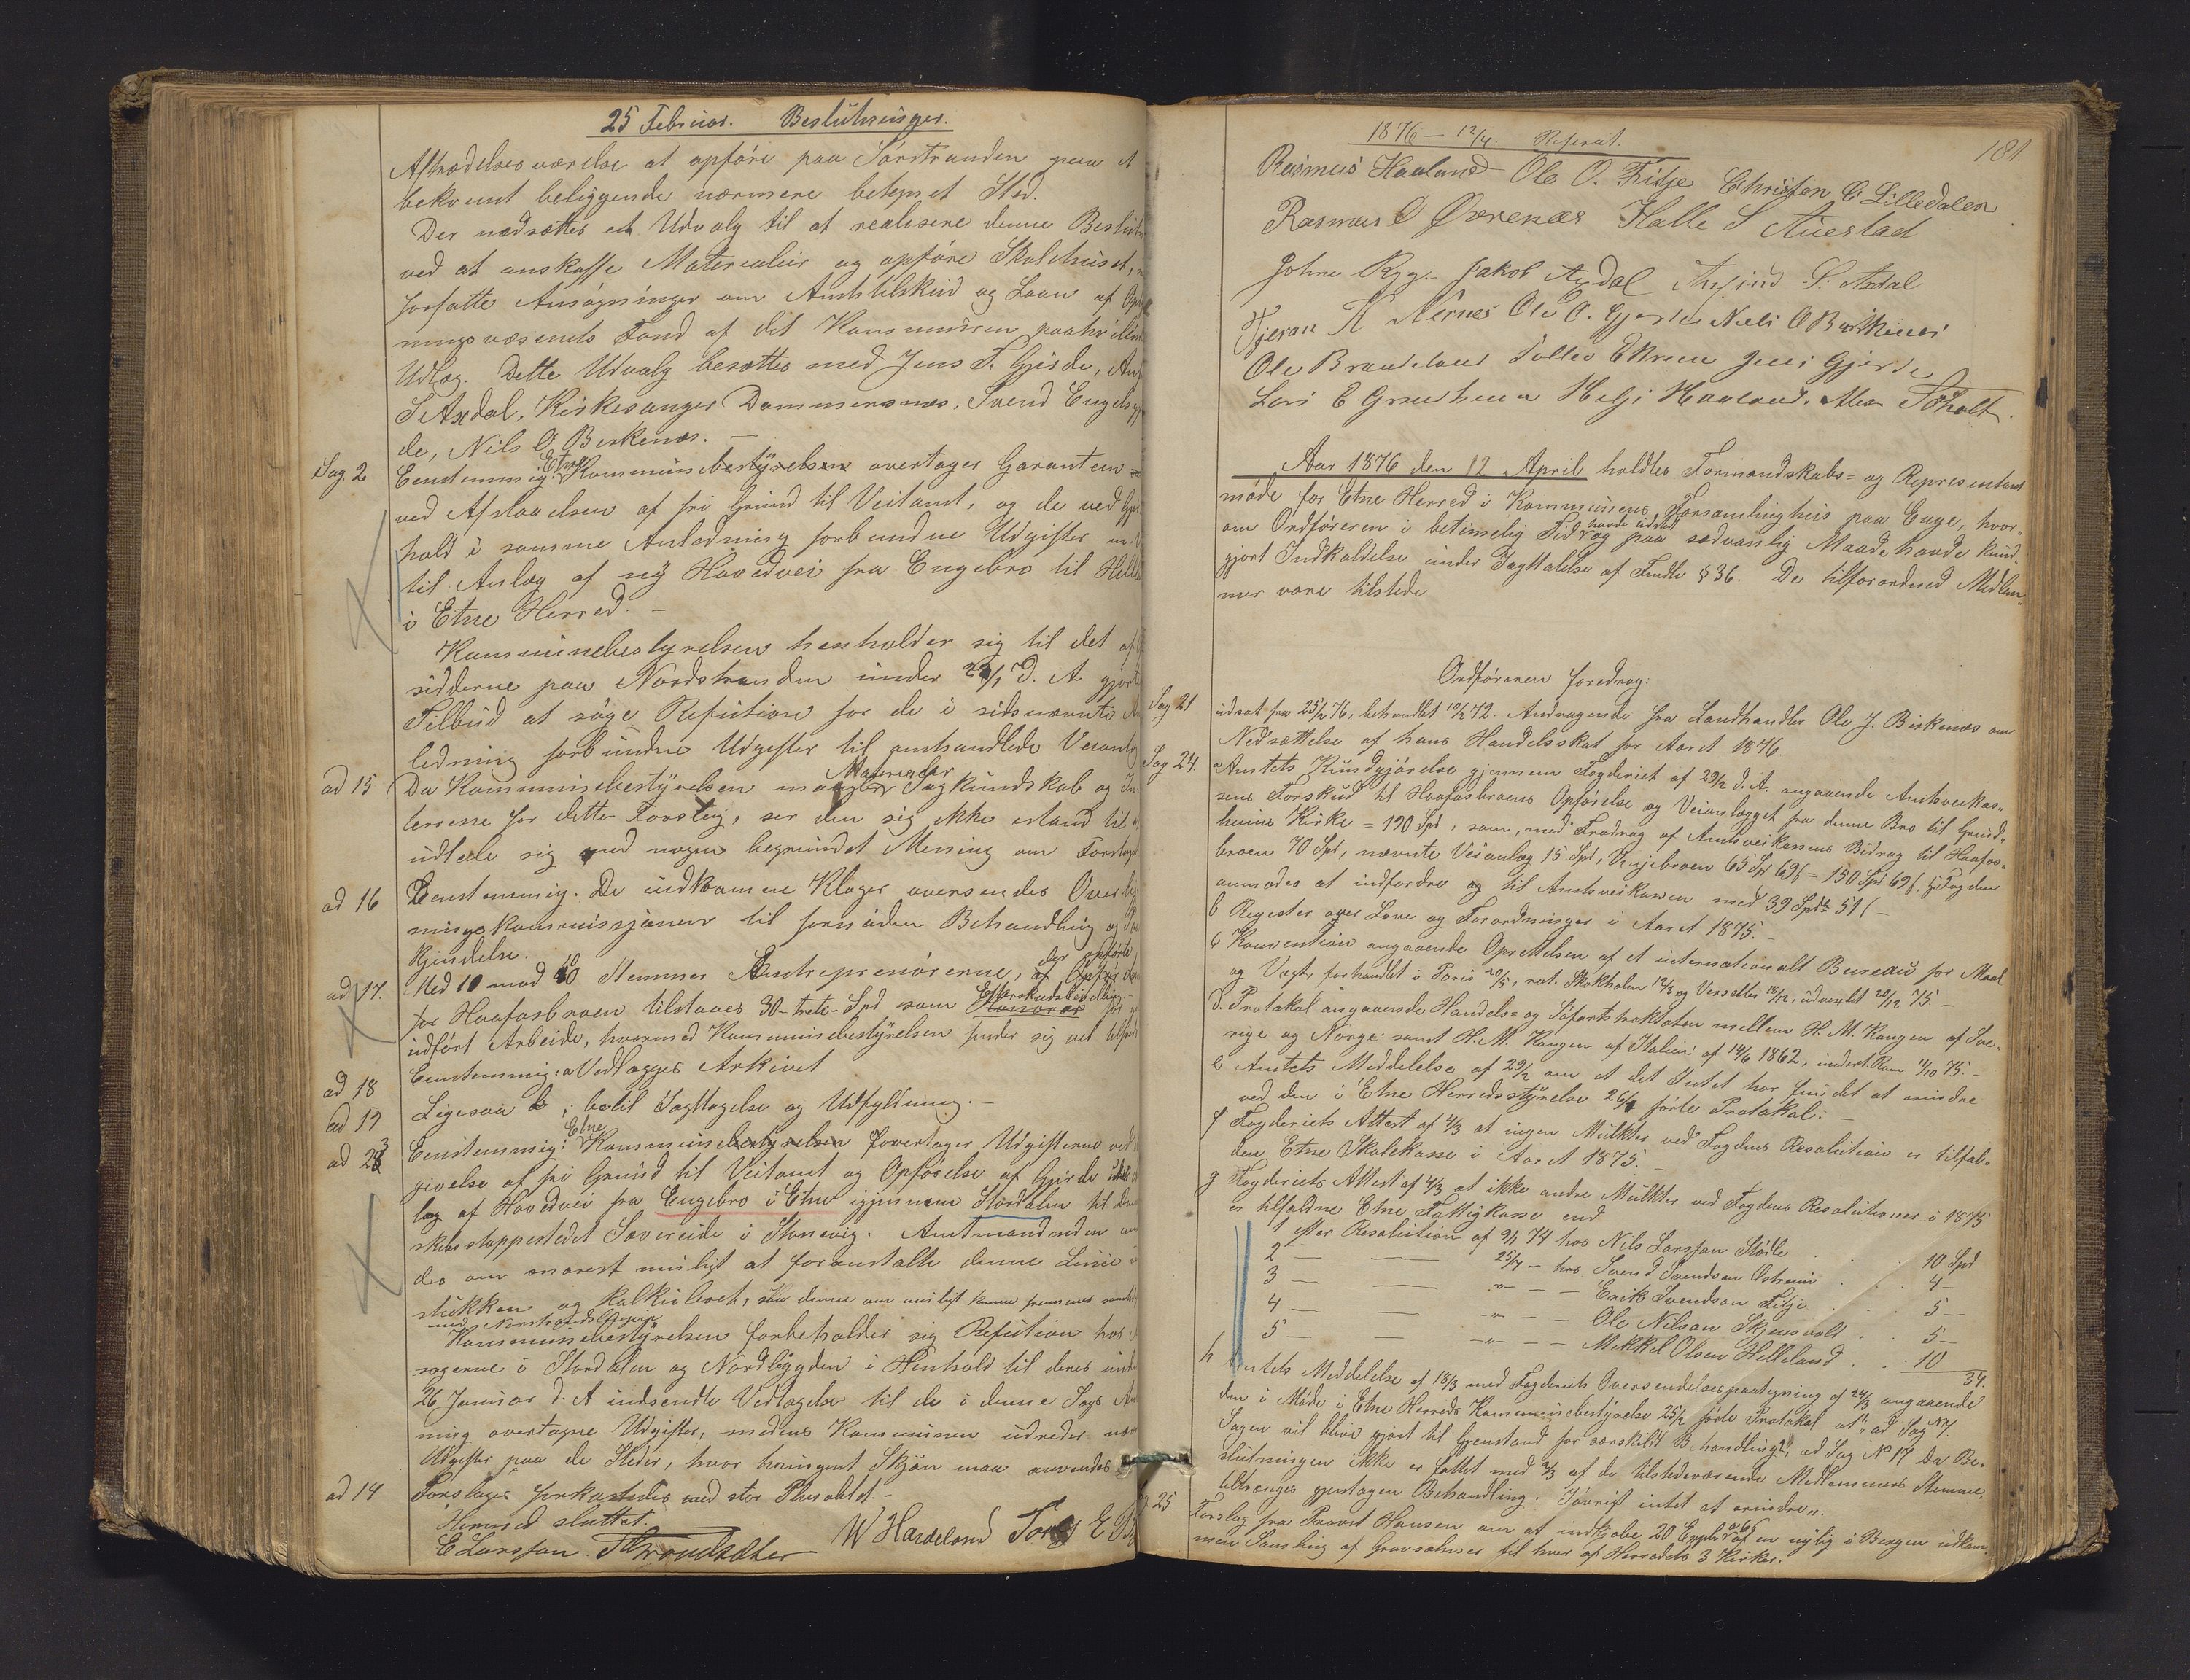 25 Februar. Beslutninger.
Aftrædelsesværelse at opføre paa Sørstranden paa et
bekvemt beliggende nærmere betegnet Sted.
Der nedsættes et Udvalg til at realisere denne
ved at anskaffe Materialier og opføre Skolehuset,
forfatte Ansøgninger om Amtstilskud og Laan af
ningsvæsenets Fond af det Kommunen
Udlæg. Dette Udvalg besættes med Jens T. Gjerde,
S Axdal, Kirkesanger Dommersnes, Svend
de, Nils O Birkenes. —
Sag 2 Eenstemmig: Etne Kommunebestyrelsen overtager Garantein
ved Afstaaelsen af fri Grund til Veitomt, og de ved
hold i samme Anledning forbundne Udgifter
til Anlæg af ny Hovedvei fra Engebro til
i Etne Herred. —
Kommunebestyrelsen henholder sig til det af
sidderne paa Nordstranden under d. A
Tilbud at søge Refution for de i sidsnævnte
ledning forbundne Udgifter til omhandlede
ad 15 Da Kommunebestyrelsen mangler Materialer Sagkundskab og
terresse for dette Forslag, ser den sig ikke istand til
udtale sig med nogen begrundet Mening om
ad 16 Eenstemmig. De indkomne Klager oversendes
ningskommissjonen til fornøden Behandling og
Kjendelse.
ad 17. Med 10 mod 10 Stemmer Entreprenørerne, der opførte
for Haafosbroen tilstaaes 30 - treti - Spd som Honorar
udført Arbeide, hvormed Kommunebestyrelsen finder sig vel
ad 18 Eenstemmig: a Vedlægges Arkivet
ad 19 Ligesaa b; c til Iagttagelse og Udfyldning. —
ad 23 Eenstemmig: Etne Kommunebestyrelsen overtager Udgifterne ved
givelse af fri Grund til Veitomt og Opførelse af Gjerde
læg af Hovedvei fra Engebro i Etne igjennem Stordalen til
skibsstoppestedet Sævereide i Skonevig. Amtmanden
des om snarest muligt at foranstalte denne Linie
stukken og kalkuleret, saa denne om muligt kunne fremmes
Kommunebestyrelsen forbeholder sig Refution hos
sagerne i Stordalen og Nordbygden i Henhold til deres
26 Januar d. A indsendte Vedtagelse til de i denne Sags
ning overtagne Udgifter, medens Kommunen udreder
Udgifter paa de Steder, hvor Skjøn maa anvendes
ad 14 Forslaget forkastedes med stor Pluralitet. —
Hermed sluttet.
E Larssen. W Hardeland
1876 — 12/4. Referat. 181.
Rasmus Haaland Ole O. Fitje Christen C Lilledalen
Rasmus O Øvrenæs Halle S Auestad
Johne Ryg. Jakob Axdal Anfind S. Axdal
Ole O. Gjerde Niels O Birkenes
Ole Brandeland Jens Gjerde
Lars E Grindheim Helje Haaland.
Aar 1876 den 12 April holdtes Formandskabs= og Representant
møde for Etne Herred i Kommunens Forsamlinghus paa Enge, hvor-
om Ordføreren i betimelig Tid og paa sædvanlig Maade havde kund-
gjort Indkaldelse under Iagttatelse af Fmdls § 36. De tilforordned Medlem-
mer vare tilstede
Ordføreren foredrog:
Sag 21 udsat fra 25/2 76, behandlet 10/2 72. Andragende fra Landhandler Ole J. Birkenæs om
Nedsættelse af hans Handelsskat for Aaret 1876.
Sag 24. a Amtets Kundgjørelse gjennem Fogderiet af 29/2 d. A. angaaende Amtsveikas-
sens Forskud til Haafosbroens Opførelse og Veianlægget fra denne Bro til Grind-
heims Kirke = 190 Spd, som, med Fradrag af Amtsveikassens Bidrag til Haafos-
broen 70 Spd, nævnte Veianlæg 15 Spd, 65 Spd 69 ß = 150 Spd 69 ß, Fogden
anmodes at indfordre og til Amtsveikassen med 39 Spd 51 ß —
b Register over Love og Forordninger i Aaret 1875. —
c Konvention angaaende Oprettelsen af et internationalt Bureau for Maal
og Vægt, forhandlet i Paris 20/5, rat. Stokholm og Versailles, udvexlet 20/12 75. —
d. Protokol angaaende Handels= og Søfartstraktaten mellem H. M. Kongen af Sve-
rige og Norge samt H. M. Kongen af Italien af 14/6 1862, undert. Rom 11/10 75. —
e Amtets Meddelelse af 29/2 om at det Intet har fundet at erindre
ved den i Etne Herredsstyrelse 26/1 førte Protokol. —
f Fogderiets Attest af 4/3 at ingen Mulkter ved Fogdens Resolution er tilfal-
den Etne Skolekasse i Aaret 1875. —
g Fogderiets Attest af 4/3 at ikke andre Mulkter ved Fogdens Resolutioner i 1875
er tilfaldne Etne Fattigkasse end
1 efter Resolution af 9/11 74 hos Nils Larssan Støle . . . 10 Spd
2 — — 25/7 — hos Svend Svendsen Østreim . . . 4 —
3 — — — „ — — Erik Svendsen Fitje . . . 5 —
4 — — — „ — — Ole Nilsen Skjensvold . . 5 —
5 — — — „ — — Mikkel Olsen Helleland . . 10
34.
h Amtets Meddelelse af 18/3 med Fogderiets Oversendelsespaategning af 24/3 angaaende
den i Møde i Etne Herreds Kommunebestyrelse 25/2 førte Protokol at „ ad Sag No 1.
Sagen vil blive gjort til Gjenstand for særskildt Behandling", ad Sag No 17 da Be-
slutningen ikke er fattet med 2/3 af de tilstedeværende Medlemmers Stemme,
tiltrænges gjentagen Behandling. Iøvrigt intet at erindre „.
25 Forslag fra Provst Hansen om at indkjøbe 20 Exmplr af en nylig i Bergen udkom-
men Samling af Gravsalmer til hver af Herredets 3 Kirker.